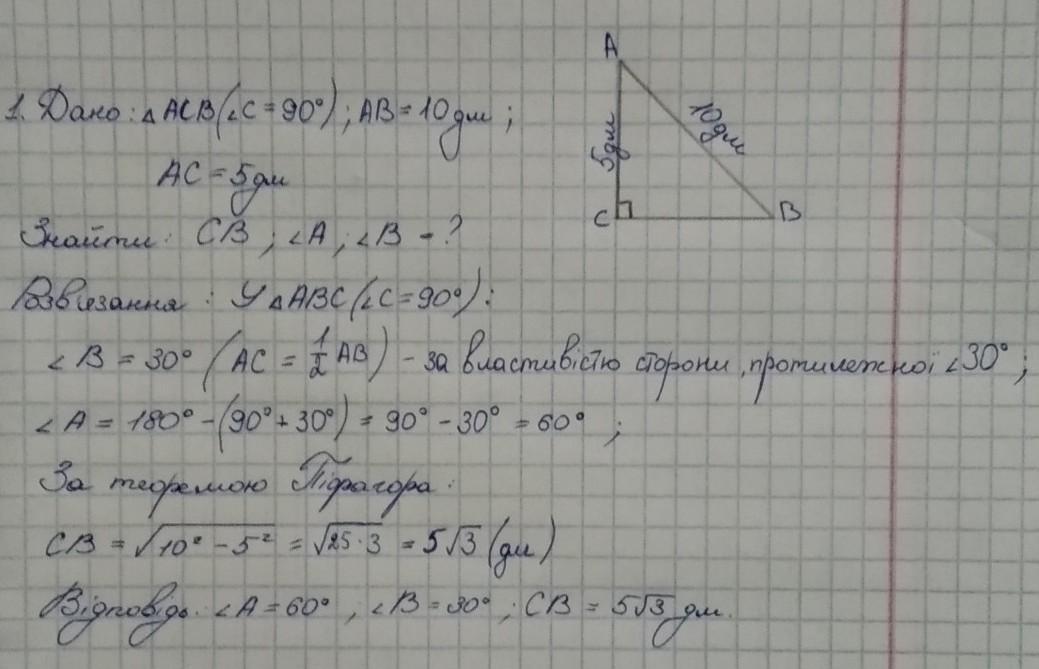 1. Дано: △ACB(∠C=90°); AB=10дм;
AC=5дм
Знайти: CB; ∠A; ∠B-?
Розв'язання: У △ABC(∠C=90°):
∠B=30° (AC=1/2 AB) - за властивістю сторони, протилежної ∠30°;
∠A=180°-(90°+30°)=90°-30°=60°;
За теоремою Піфагора:
CB=√10²-5²=√25·3=5√3(дм)
Відповідь: ∠A=60°, ∠B=30°; CB=5√3 дм.
A
5дм
10дм
C
B